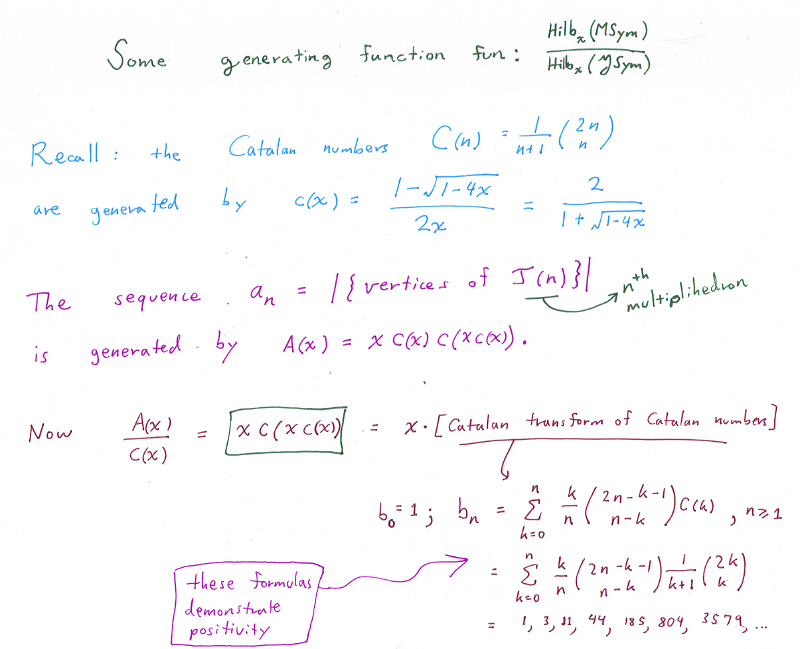 Some generating function fun: Hilb_x(MSym) / Hilb_x(YSym)
Recall: the Catalan numbers C(n) = 1/(n+1) (2n choose n)
are generated by c(x) = (1-√(1-4x)) / 2x = 2 / (1+√(1-4x))
The sequence a_n = |{vertices of J(n)}| → nth multiplihedron
is generated by A(x) = x C(x) C(xC(x)).
Now A(x)/C(x) = x C(xC(x)) = x · [Catalan transform of Catalan numbers]
b_0 = 1; b_n = Σ_{k=0}^{n} k/n (2n-k-1 choose n-k) C(k), n≥1
= Σ_{k=0}^{n} k/n (2n-k-1 choose n-k) 1/(k+1) (2k choose k)
= 1, 3, 11, 44, 185, 804, 3579, ...
these formulas
demonstrate
positivity